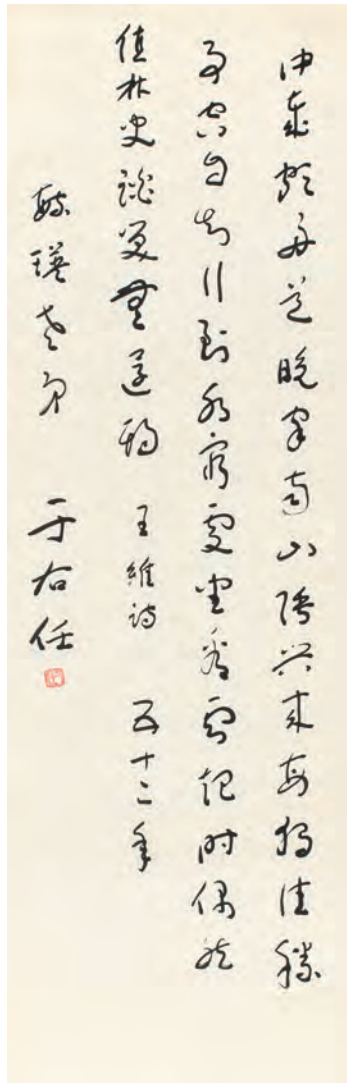 中歲頗好道晚家南山陲興來每獨往勝
事空自知行到水窮處坐看雲起時偶然
值林叟談笑無還期 王維詩 五十二年
毓瑛老 于右任